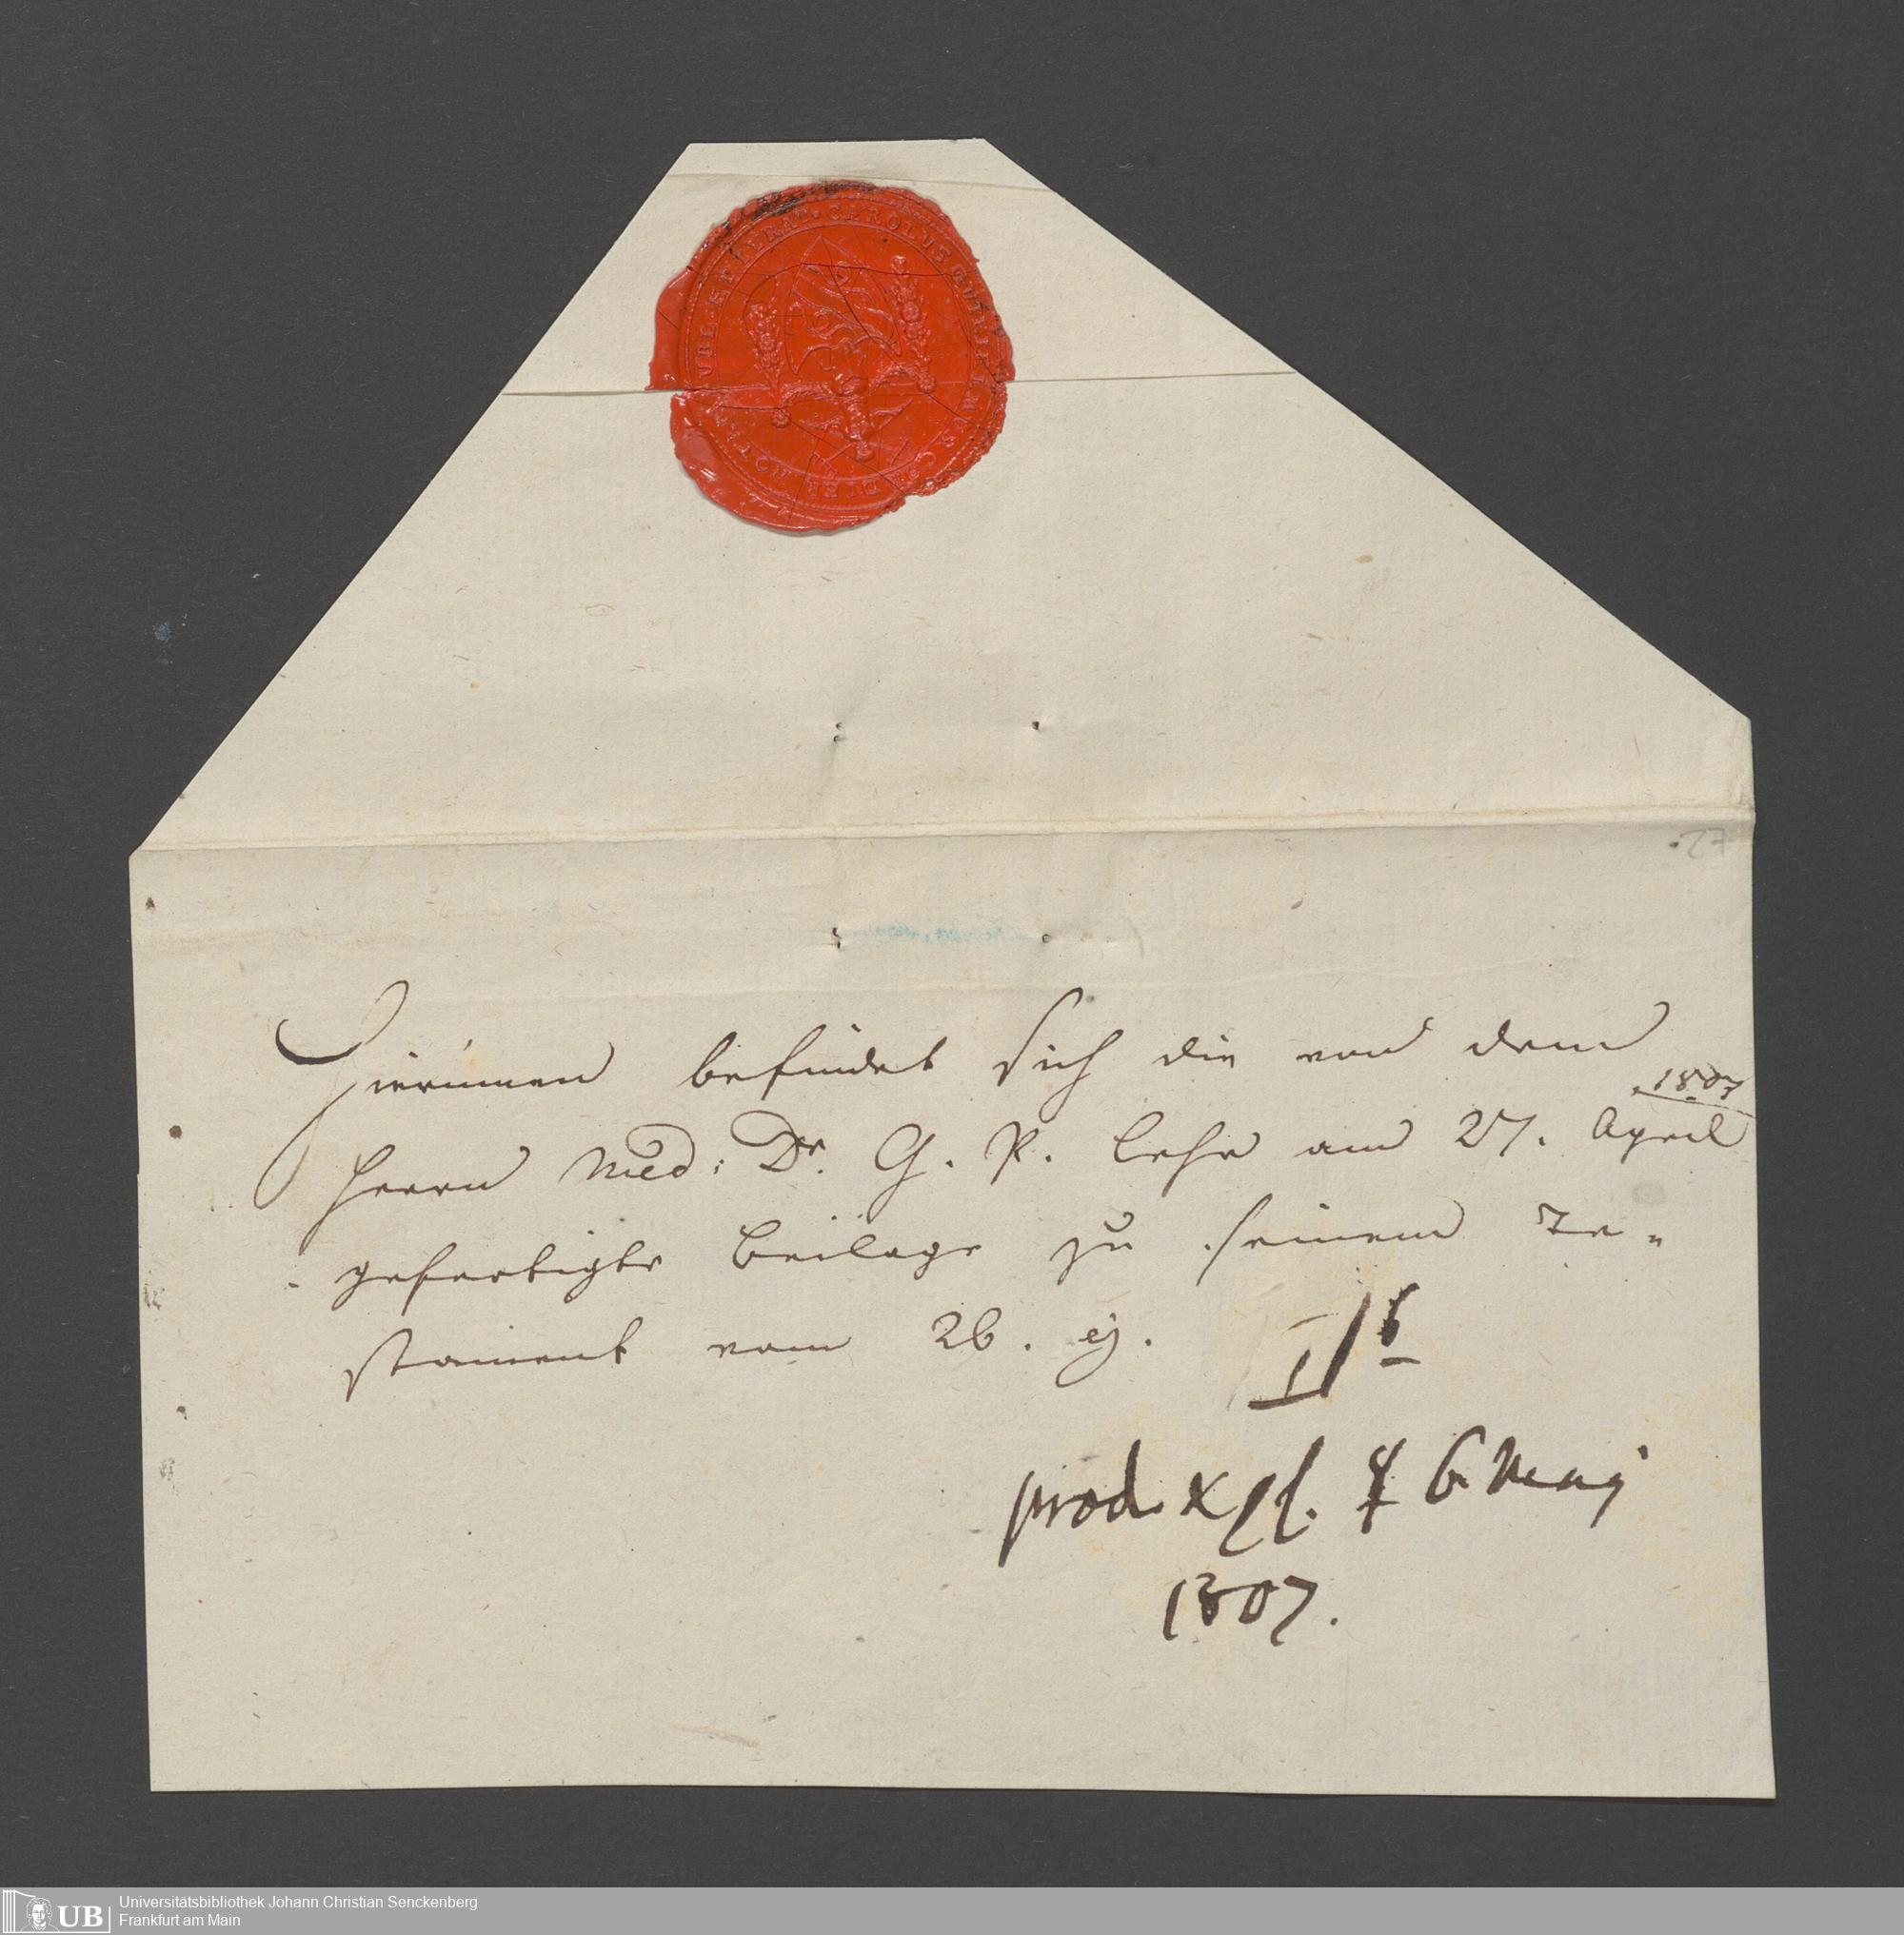 27
Hierinnen befindet sich die von dem
1807
Herrn Med: Dr. G. P. Lehr am 27. April
gefertigte Beilage zu seinem Te-
stament vom 26. ej.
prod. 6. May
1807.
CAROLUS
NOT
UB Universitätsbibliothek Johann Christian Senckenberg
Frankfurt am Main